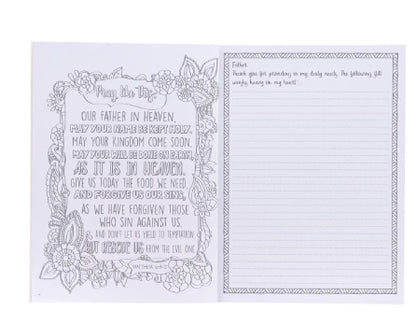 Pray like this:
OUR FATHER IN HEAVEN,
MAY YOUR NAME BE KEPT HOLY.
MAY YOUR KINGDOM COME SOON.
MAY YOUR WILL BE DONE ON EARTH,
AS IT IS IN HEAVEN.
GIVE US TODAY THE FOOD WE NEED
AND FORGIVE US OUR SINS,
AS WE HAVE FORGIVEN THOSE
WHO SIN AGAINST US.
AND DON'T LET US YIELD TO TEMPTATION
BUT RESCUE US FROM THE EVIL ONE
MATTHEW
Father,
Thank you for providing my daily needs. The following
heavy on my heart: